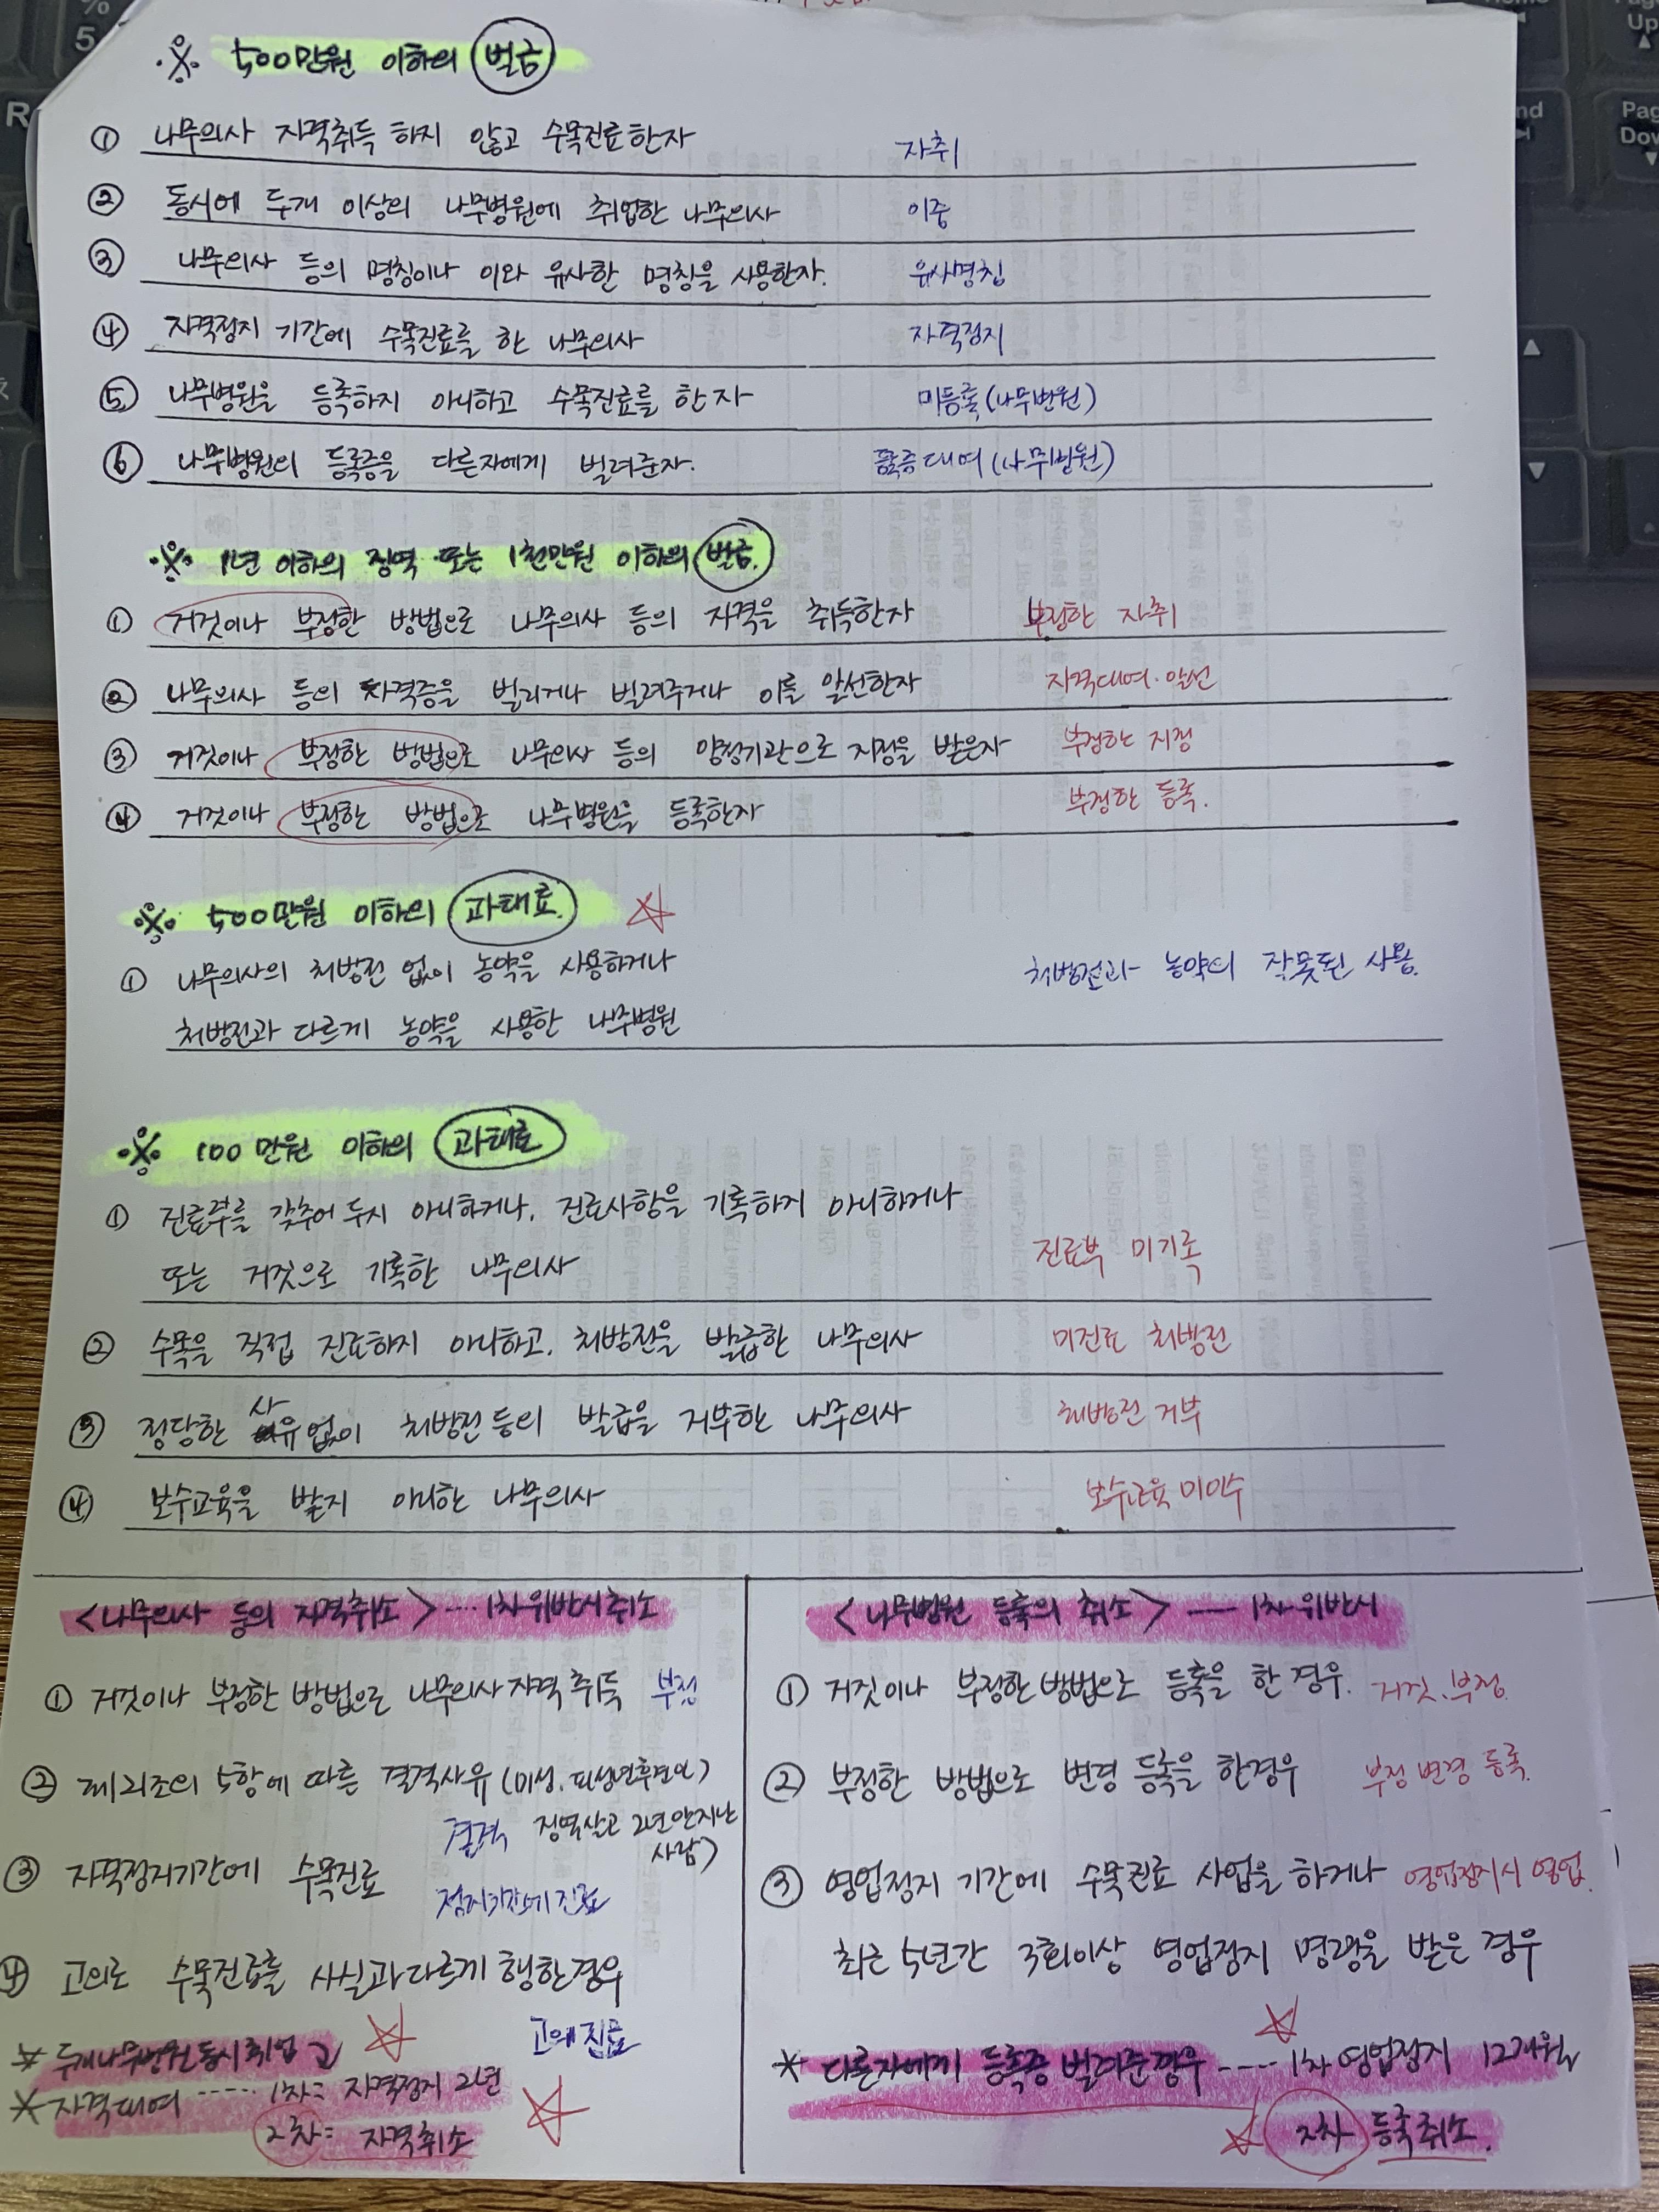 ※ 500만원 이하의 벌금
① 나무의사 자격취득 하지 않고 수목진료한자 자취
② 동시에 두개 이상의 나무병원에 취업한 나무의사 이중
③ 나무의사 등의 명칭이나 이와 유사한 명칭을 사용한자. 유사명칭
④ 자격정지 기간에 수목진료를 한 나무의사 자격정지
⑤ 나무병원을 등록하지 아니하고 수목진료를 한자 미등록(나무병원)
⑥ 나무병원의 등록증을 다른자에게 빌려준자. 등록증대여(나무병원)
※ 1년 이하의 징역 또는 1천만원 이하의 벌금.
① 거짓이나 부정한 방법으로 나무의사 등의 자격을 취득한자 부정한 자취
② 나무의사 등의 자격증을 빌리거나 빌려주거나 이를 알선한자 자격대여·알선
③ 거짓이나 부정한 방법으로 나무의사 등의 양성기관으로 지정을 받은자 부정한 지정
④ 거짓이나 부정한 방법으로 나무병원을 등록한자 부정한 등록.
※ 500만원 이하의 과태료.
① 나무의사의 처방전 없이 농약을 사용하거나 처방전과 농약의 잘못된 사용.
처방전과 다르게 농약을 사용한 나무병원
※ 100만원 이하의 과태료
① 진료부를 갖추어 두지 아니하거나, 진료사항을 기록하지 아니하거나
또는 거짓으로 기록한 나무의사 진료부 미기록
② 수목을 직접 진료하지 아니하고, 처방전을 발급한 나무의사 미진료 처방전
③ 정당한 사유없이 처방전등의 발급을 거부한 나무의사 처방전 거부
④ 보수교육을 받지 아니한 나무의사 보수교육 미이수
<나무의사 등의 자격취소> ---- 1차위반시취소
① 거짓이나 부정한 방법으로 나무의사 자격 취득 부정
② 제21조의 5항에 따른 결격사유 (미성, 피성년후견인)
결격 징역살고 2년안지난
사람)
③ 자격정지기간에 수목진료
정지기간에 진료
④ 고의로 수목진료를 사실과다르게 행한경우
고의진료
* 두개나무병원동시취업
* 자격대여 ----- 1차: 자격정지 2년
2차: 자격취소
<나무병원 등록의 취소> --- 1차위반시
① 거짓이나 부정한방법으로 등록을 한 경우. 거짓.부정.
② 부정한 방법으로 변경 등록을 한경우 부정변경 등록.
③ 영업정지 기간에 수목진료 사업을 하거나 영업정지시 영업.
최근 5년간 3회이상 영업정지 명령을 받은 경우
* 다른자에게 등록증 빌려준경우 ---- 1차 영업정지 12개월
2차 등록취소.